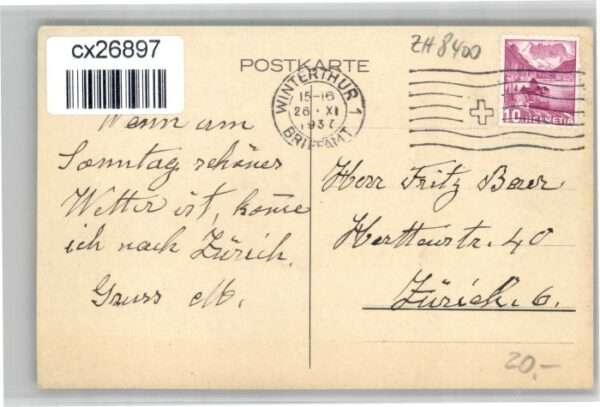 cx26897
POSTKARTE
ZH 8400
WINTERTHUR 1
15-16
26. XI
1937
BRIEFAMT
10 HELVETIA
Wenn am
Sonntag schönes
Wetter ist, kome
ich nach Zürich.
Gruss M.
Herr Fritz Baer
40
Zürich. 6.
20.-